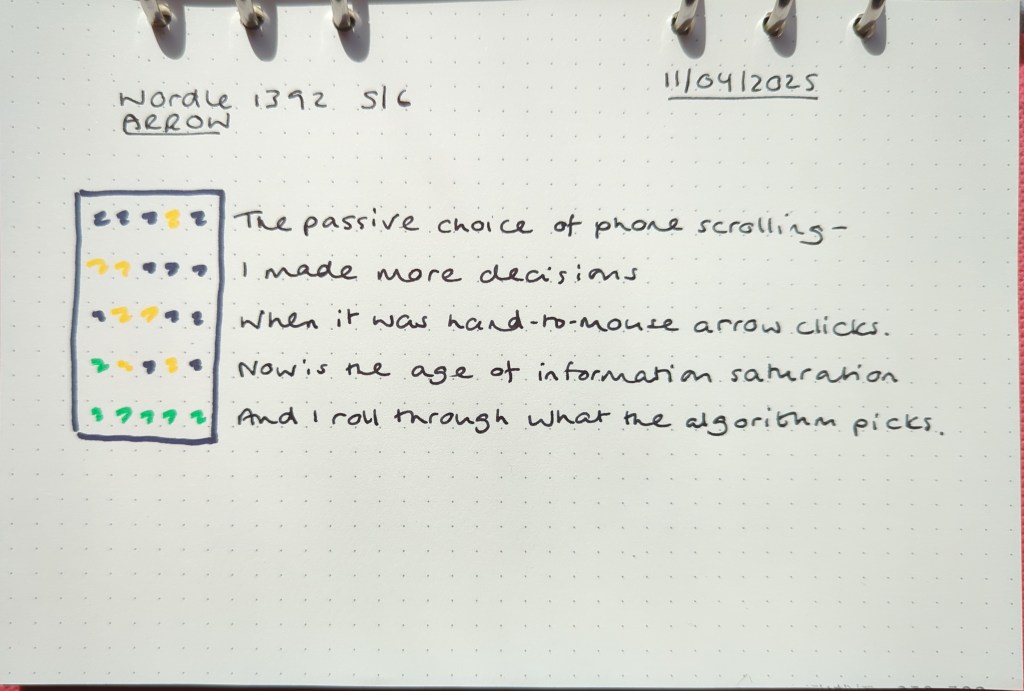 Wordle 1392 5/6
ARROW
11/04/2025
The passive choice of phone scrolling-
I made more decisions
When it was hand-to-mouse arrow clicks.
Now is the age of information saturation
And I roll through what the algorithm picks.